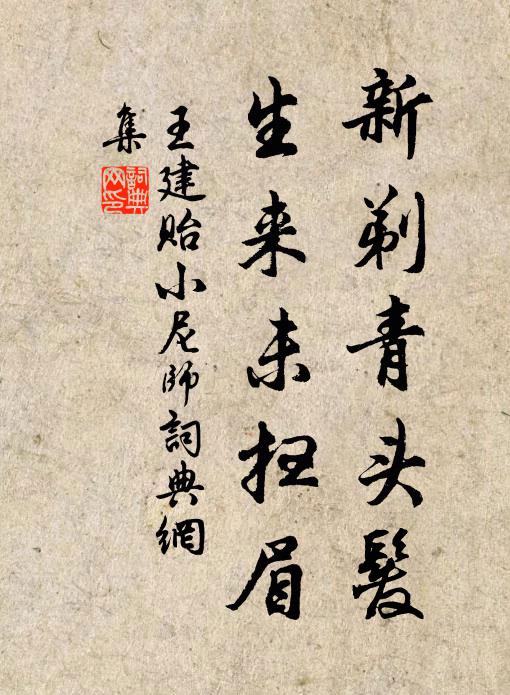 新剃青头髮
生来未扫眉
王建贻小尼師詞典網
集
詞典
网印